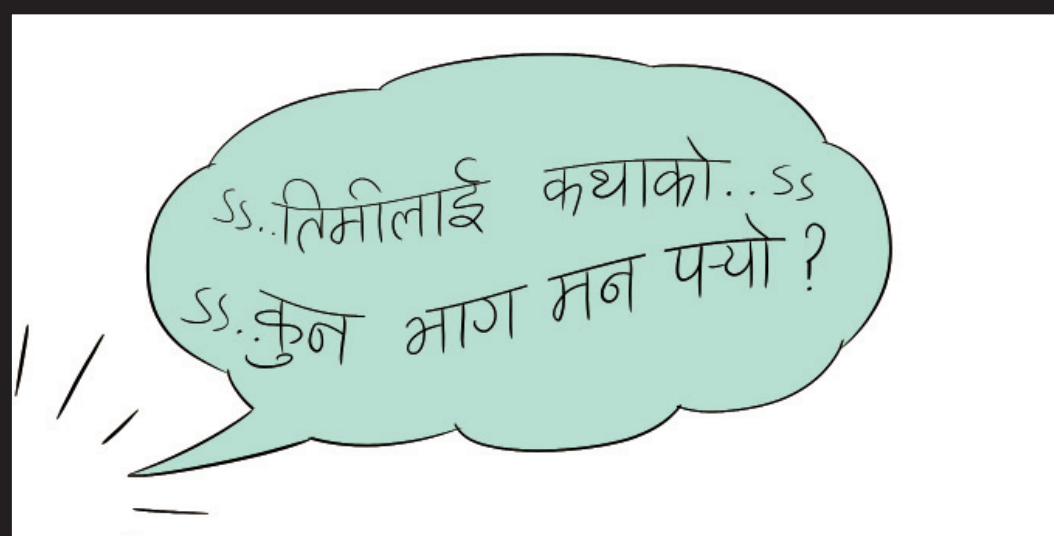 ऽऽ..तिमीलाई कथाको..ऽऽ
ऽऽ..कुन भाग मन पर्‍यो ?